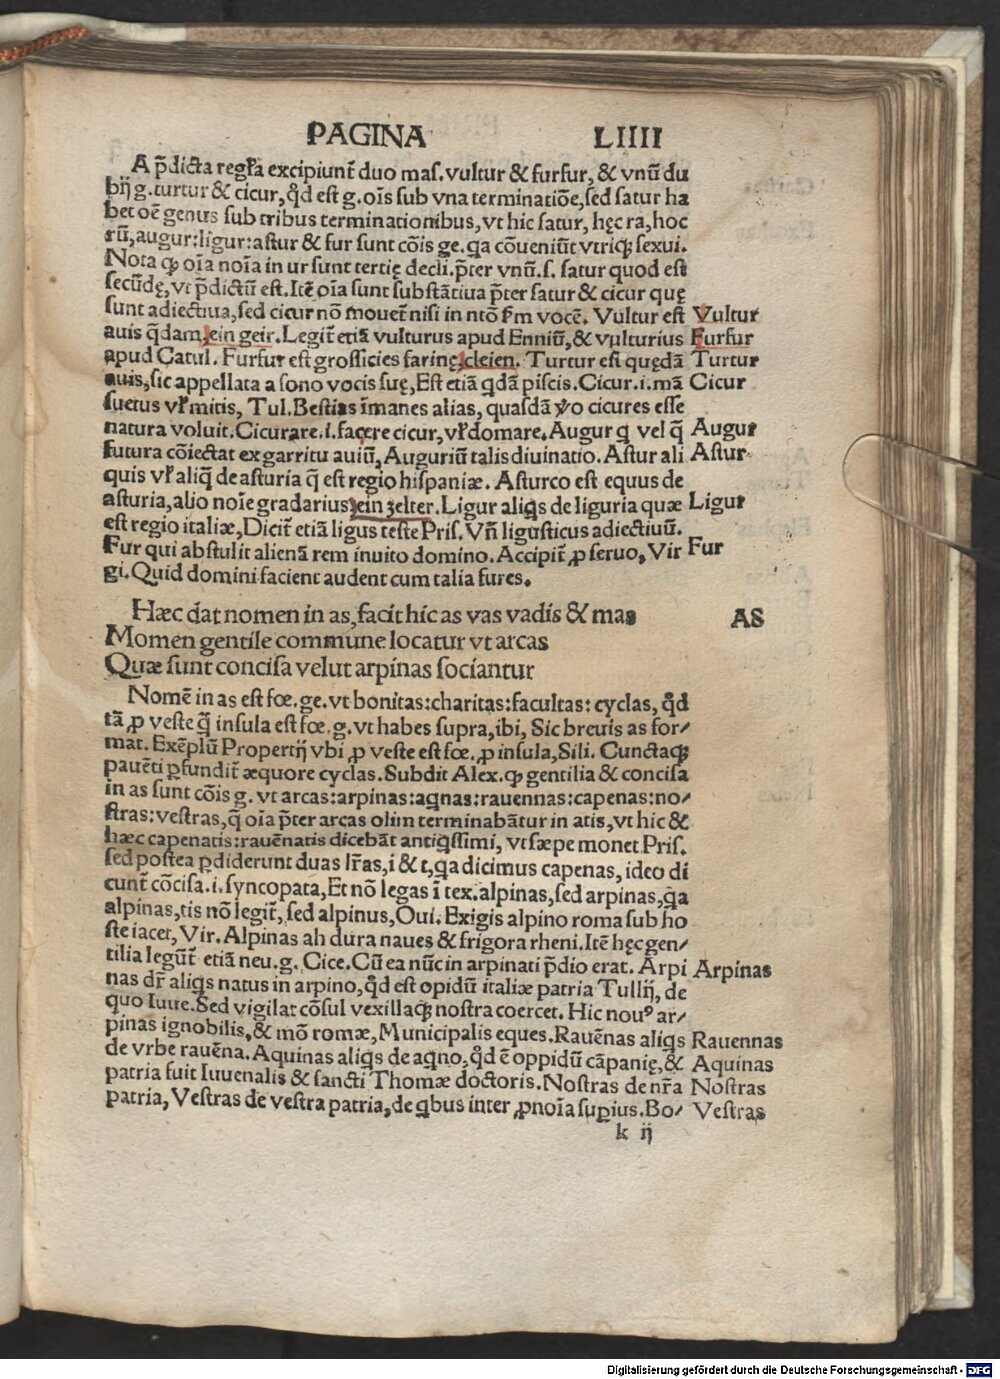 PAGINA LIIII
A p̄dicta regl̃a excipiunt̃ duo mas. vultur & furfur, & vnũ du
bij g. turtur & cicur, q̊d est g. oĩs sub vna terminatiõe, sed satur ha
bet oẽ genus sub tribus terminationibus, vt hic satur, hęc ra, hoc
rũ, augur: ligur: astur & fur sunt cõis ge. q̨a cõueniũt vtriq; sexui.
Nota ꝙ oĩa noĩa in ur sunt tertię decli. p̃ter vnũ. s. satur quod est
secũdę, vt p̄dictũ est. Itẽ oĩa sunt substãtiua p̃ter satur & cicur quę
sunt adiectiua, sed cicur nõ mouet̃ nisi in ntõ ẜm vocẽ. Vultur est Vultur
auis q̃dam, ein geir. Legit̃ etiã vulturus apud Enniũ, & vulturius Furfur
apud Catul. Furfur est grossicies farinę, cleien. Turtur est quędã Turtur
auis, sic appellata a sono vocis suę, Est etiã q̨dã piscis. Cicur. i. mã Cicur
suetus vl̃ mitis, Tul. Bestias ĩmanes alias, quasdã ꝟo cicures esse
natura voluit. Cicurare. i. facere cicur, vl̃ domare. Augur q̨ vel q̃ Augur
futura cõiectat ex garritu auiũ, Auguriũ talis diuinatio. Astur ali Astur
quis vl̃ aliq̃ de asturia q̃ est regio hispaniæ. Asturco est equus de
asturia, alio noĩe gradarius, ein zelter. Ligur aliq̨s de liguria quæ Ligur
est regio italiæ, Dicit̃ etiã ligus teste Pris. Vñ ligusticus adiectiuũ.
Fur qui abstulit alienã rem inuito domino. Accipit̃ ꝓ seruo, Vir Fur
gi. Quid domini facient audent cum talia fures.
Hæc dat nomen in as, facit hic as vas vadis & mas AS
Momen gentile commune locatur vt arcas
Quæ sunt concisa velut arpinas sociantur
Nomẽ in as est fœ. ge. vt bonitas: charitas: facultas: cyclas, q̊d
tã ꝓ veste q̃ insula est fœ. g. vt habes supra, ibi, Sic breuis as for⸗
mat. Exẽplũ Propertij vbi ꝓ veste est fœ. ꝓ insula, Sili. Cunctaq;
pauẽti ꝑfundit̃ æquore cyclas. Subdit Alex. ꝙ gentilia & concisa
in as sunt cõis g. vt arcas: arpinas: aq̨nas: rauennas: capenas: no⸗
stras: vestras, q̃ oĩa p̃ter arcas olim terminabãtur in atis, vt hic &
hæc capenatis: rauẽnatis dicebãt antiq̨ssimi, vt sæpe monet Pris.
sed postea ꝑdiderunt duas lr̃as, i & t, q̨a dicimus capenas, ideo di
cunt̃ cõcisa. i. syncopata, Et nõ legas ĩ tex. alpinas, sed arpinas, q̨a
alpinas, tis nõ legit̃, sed alpinus, Oui. Exigis alpino roma sub ho
ste iacet, Vir. Alpinas ah dura naues & frigora rheni. Itẽ hęc gen⸗
tilia legũt̃ etiã neu. g. Cice. Cũ ea nũc in arpinati p̄dio erat. Arpi Arpinas
nas dr̃ aliq̨s natus in arpino, q̊d est opidũ italiæ patria Tullij, de
quo Iuue. Sed vigilat cõsul vexillaq; nostra coercet. Hic nouꝰ ar⸗
pinas ignobilis, & mõ romæ, Municipalis eques. Rauẽnas aliq̨s Rauennas
de vrbe rauẽna. Aquinas aliq̨s de aq̨no, q̊d ẽ oppidũ cãpanię, & Aquinas
patria fuit Iuuenalis & sancti Thomæ doctoris. Nostras de nr̃a Nostras
patria, Vestras de vestra patria, de q̨bus inter ꝓnoĩa suꝑius. Bo⸗ Vestras
k ij
Digitalisierung gefördert durch die Deutsche Forschungsgemeinschaft - DFG